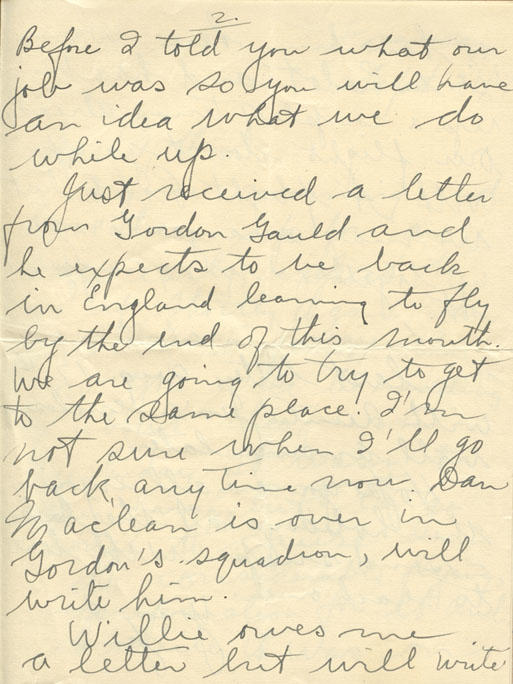 2.
Before I told you what our
job was so you will have
an idea what we do
while up.
Just received a letter
from Gordon Gauld and
he expects to be back
in England learning to fly
by the end of this month.
We are going to try to get
to the same place. I'm
not sure when I'll go
back, any time now. Dan
Maclean is over in
Gordon's squadron, will
write him.
Willie owes me
a letter but will write